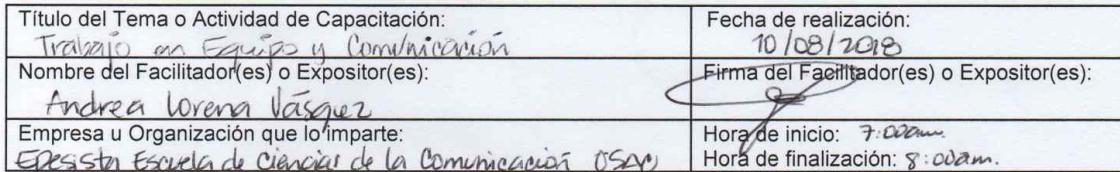 Título del Tema o Actividad de Capacitación:
Trabajo en Equipo y Comunicación
Fecha de realización:
10/08/2018
Nombre del Facilitador(es) o Expositor(es):
Andrea Lorena Vásquez
Firma del Facilitador(es) o Expositor(es):
Empresa u Organización que lo imparte:
EPesista Escuela de Ciencias de la Comunicación USAC
Hora de inicio: 7:00am.
Hora de finalización: 8:00am.